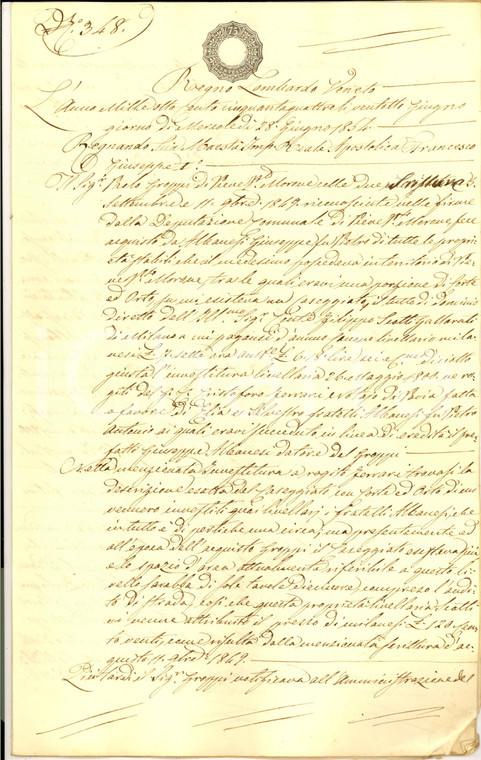 N.° 348.
75
Regno Lombardo Veneto
L'Anno Mille otto cento cinquantaquattro li ventotto Giugno
giorno di Mercoledì 28 Giugno 1854.
Regnando Sua Maestà Imp. Reale Apostolica Francesco
Giuseppe I.°
Il Sig.r Paolo Groppi di Pieve P.to Morone colle due Scritture
Settembre e 11 9bre 1849 riconosciute nelle firme
dalla Deputazione Comunale di Pieve P.to Morone fece
acquisto da Albanesi Giuseppe fu Pietro di tutte le proprie
tà stabili che il medesimo possedeva in territorio di Pie
ve P.to Morone, tra le quali eravi una porzione di Corte
ed Orto su cui esisteva un Caseggiato, il tutto di dominio
diretto dell' Ill.mo Sig.r Conte Filippo Scotti Gallarati
di Milano a cui pagavasi l'annuo canone livellario mila
nesi L. 7 sette ora
giusta l'investitura livellaria 26 Maggio ne ro
giti del Ferrari
a favore di Elia e Silvestro fratelli Albanesi fu Pietro
Antonio ai quali eravi succeduto in linea di eredità il pre
fatto Giuseppe Albanesi datore del Groppi
Nella menzionata Investitura a rogito Ferrari trovasi la
descrizione esatta del Caseggiato con Corte ed Orto di cui
vennero investiti quai livellarj i fratelli Albanesi, che
in tutto è di pertiche una circa; ma presentemente ed
all'epoca dell'acquisto Groppi il Caseggiato esisteva più
e lo spazio d'area attualmente riferibile a questo li
vello sarebbe di sole tavole compreso l'andi
to di strada, così che questa proprietà livellaria Scotti
ni venne attribuito il prezzo di milanesi L. 120 cento
venti, come risulta dalla menzionata scrittura d'ac
quisto 11 9bre 1849.
Più tardi il Sig.r Groppi notificava all'Amministrazione del